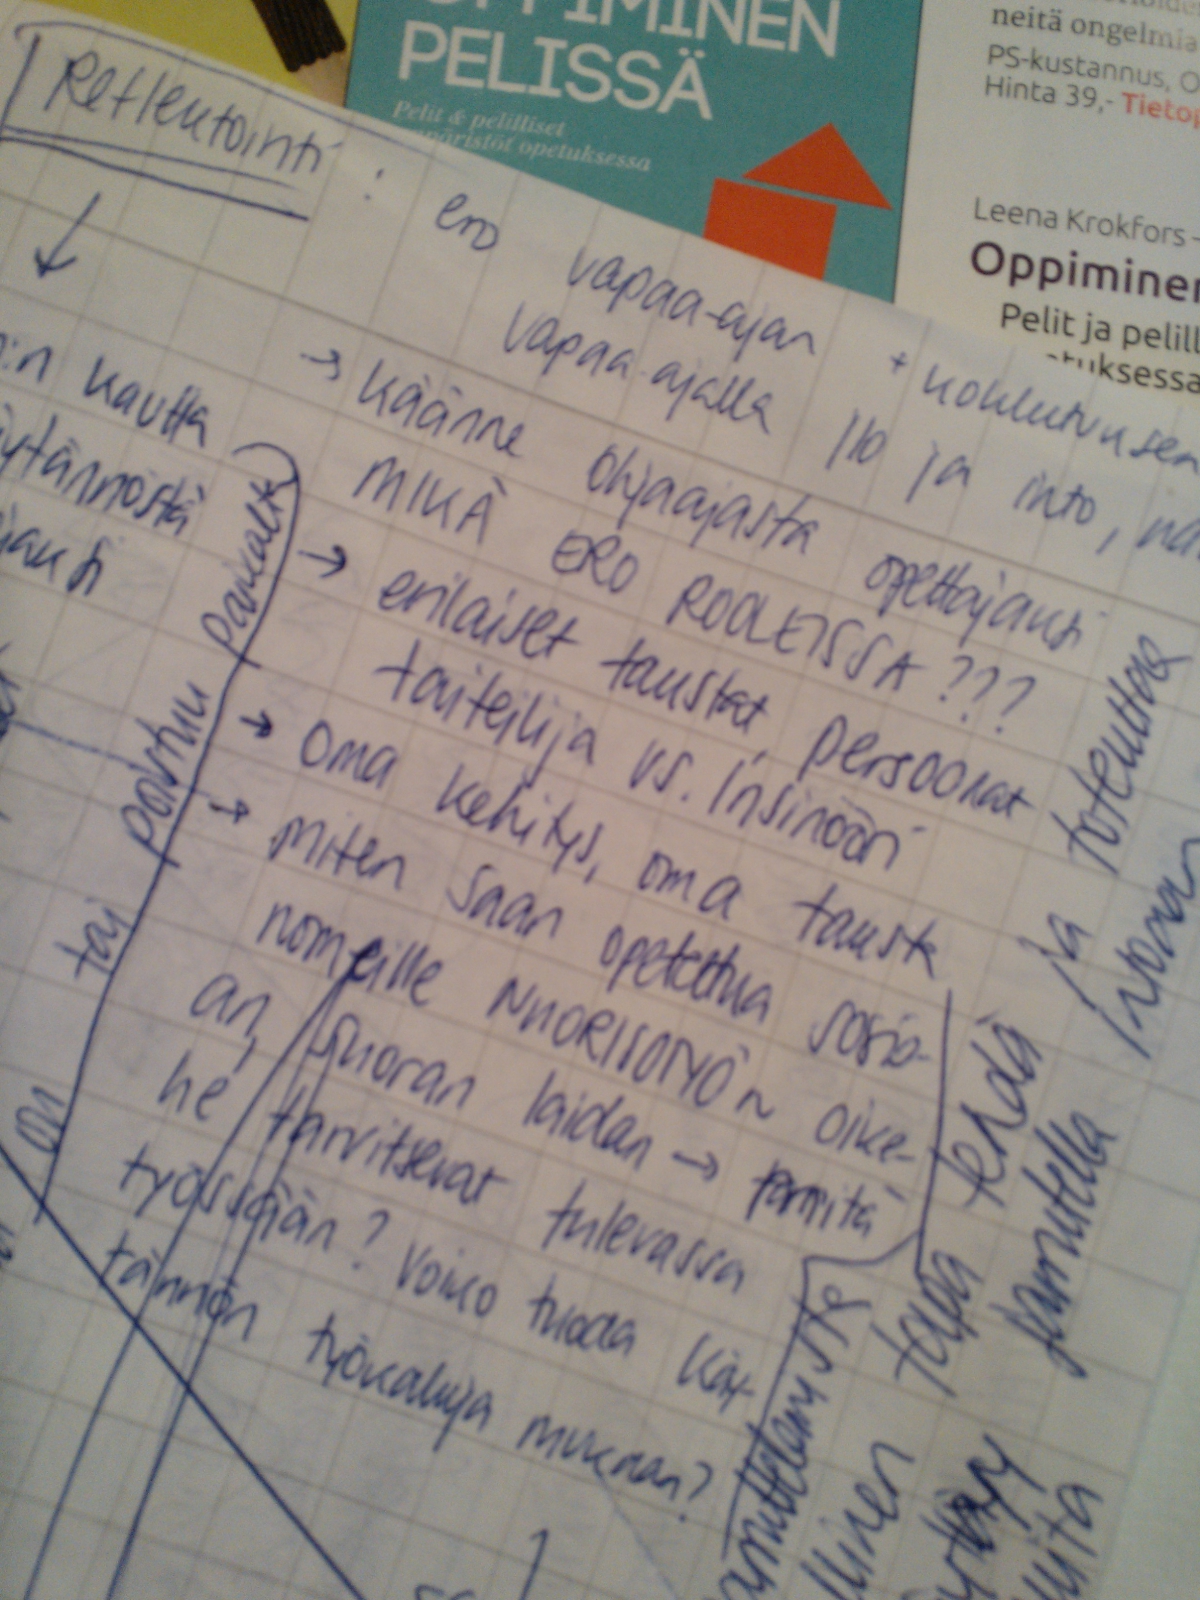 OPPIMINEN
PELISSÄ
Pelit & pelilliset
ympäristöt opetuksessa
neitä ongelmia
PS-kustannus, O
Hinta 39,- Tietop
Leena Krokfors -
Oppiminen
Pelit ja pelill
etuksessa
Reflektointi : ero vapaa-ajan + koulutuksen
vapaa-ajalla ilo ja into,
→ käänne ohjaajasta opettajaksi
MIKÄ ERO ROOLEISSA???
→ erilaiset taustat, persoonat
taiteilija vs. insinööri
→ oma kehitys, oma tausta
→ miten saan opetettua sosio-
nomeille NUORISOTYÖN oike-
an, suoran laidan →
he tarvitsevat tulevassa
työssään? Voiko tuoda käy-
tännön työkaluja mukaan?
:n kautta
ytännöstä
jaksi
on tai poistuu paikalta
tapa tehdä ja toteuttaa